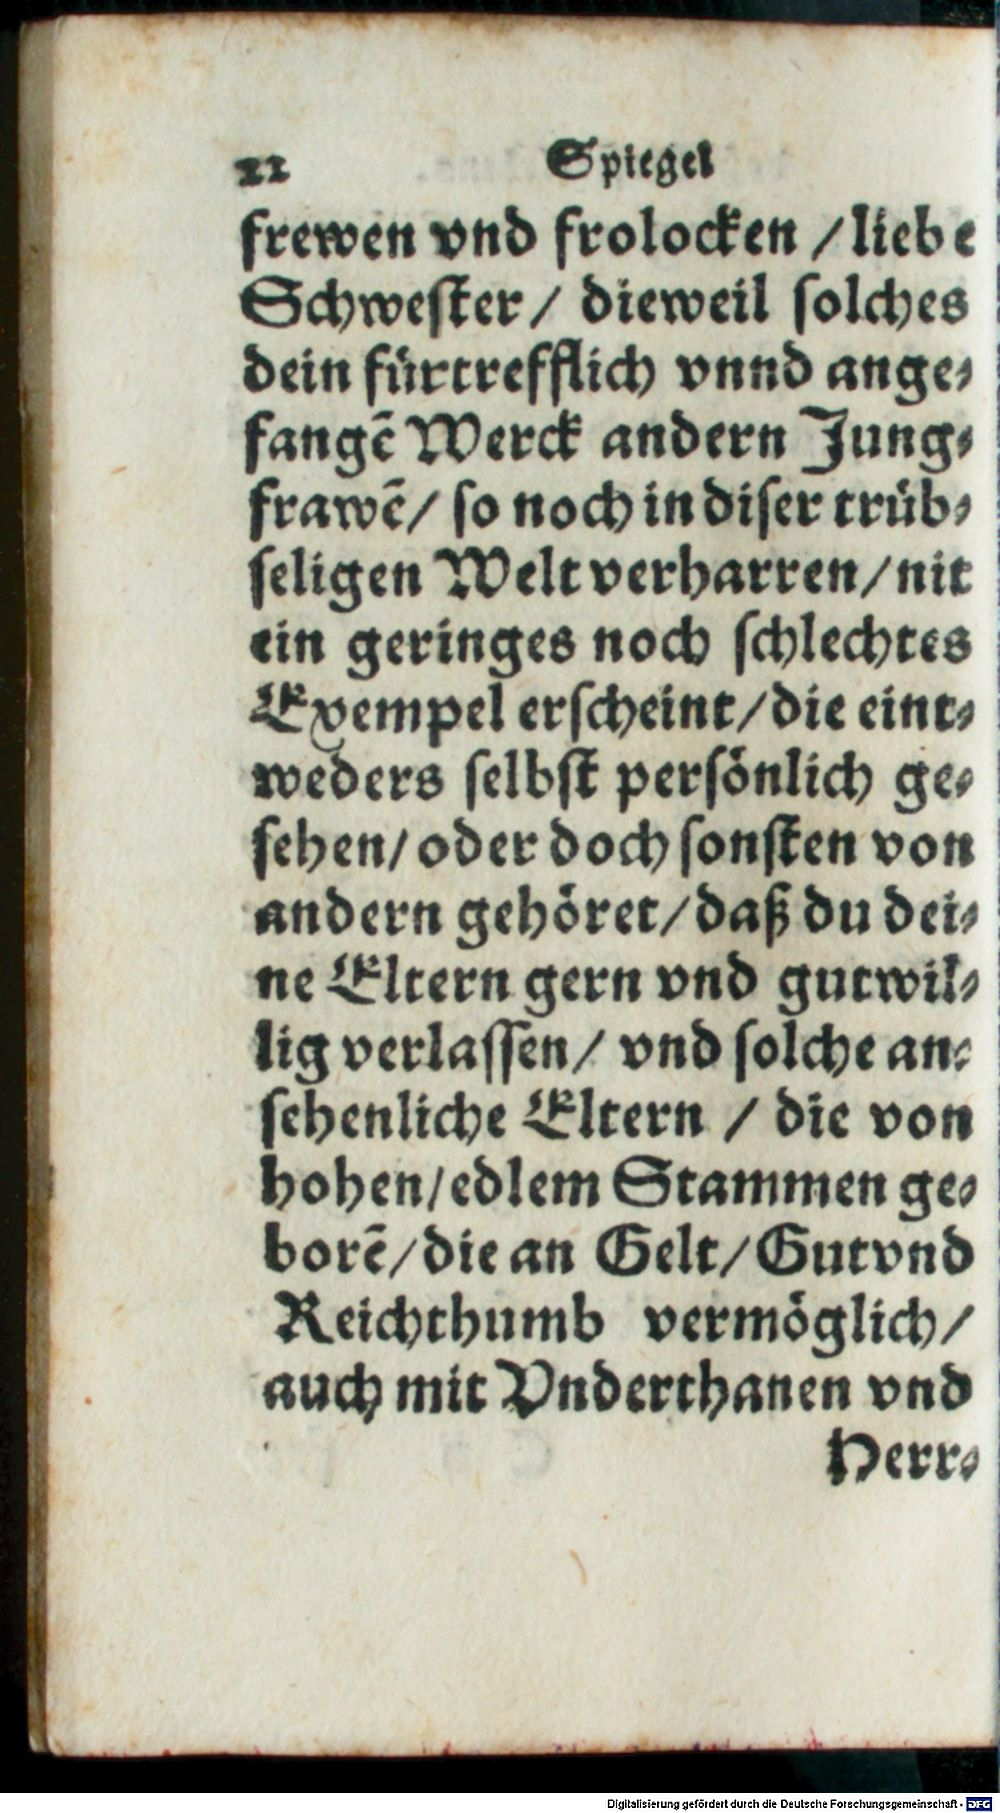 22 Spiegel
frewen vnd frolocken / liebe
Schwester / dieweil solches
dein fürtrefflich vnnd ange⸗
fangẽ Werck andern Jung⸗
frawẽ / so noch in diser trüb⸗
seligen Welt verharren / nit
ein geringes noch schlechtes
Exempel erscheint / die eint⸗
weders selbst persönlich ge⸗
sehen / oder doch sonsten von
andern gehöret / daß du dei⸗
ne Eltern gern vnd gutwil⸗
lig verlassen / vnd solche an⸗
sehenliche Eltern / die von
hohen / edlem Stammen ge⸗
borẽ / die an Gelt / Gut vnd
Reichthumb vermöglich /
auch mit Vnderthanen vnd
Herr⸗
Digitalisierung gefördert durch die Deutsche Forschungsgemeinschaft - DFG